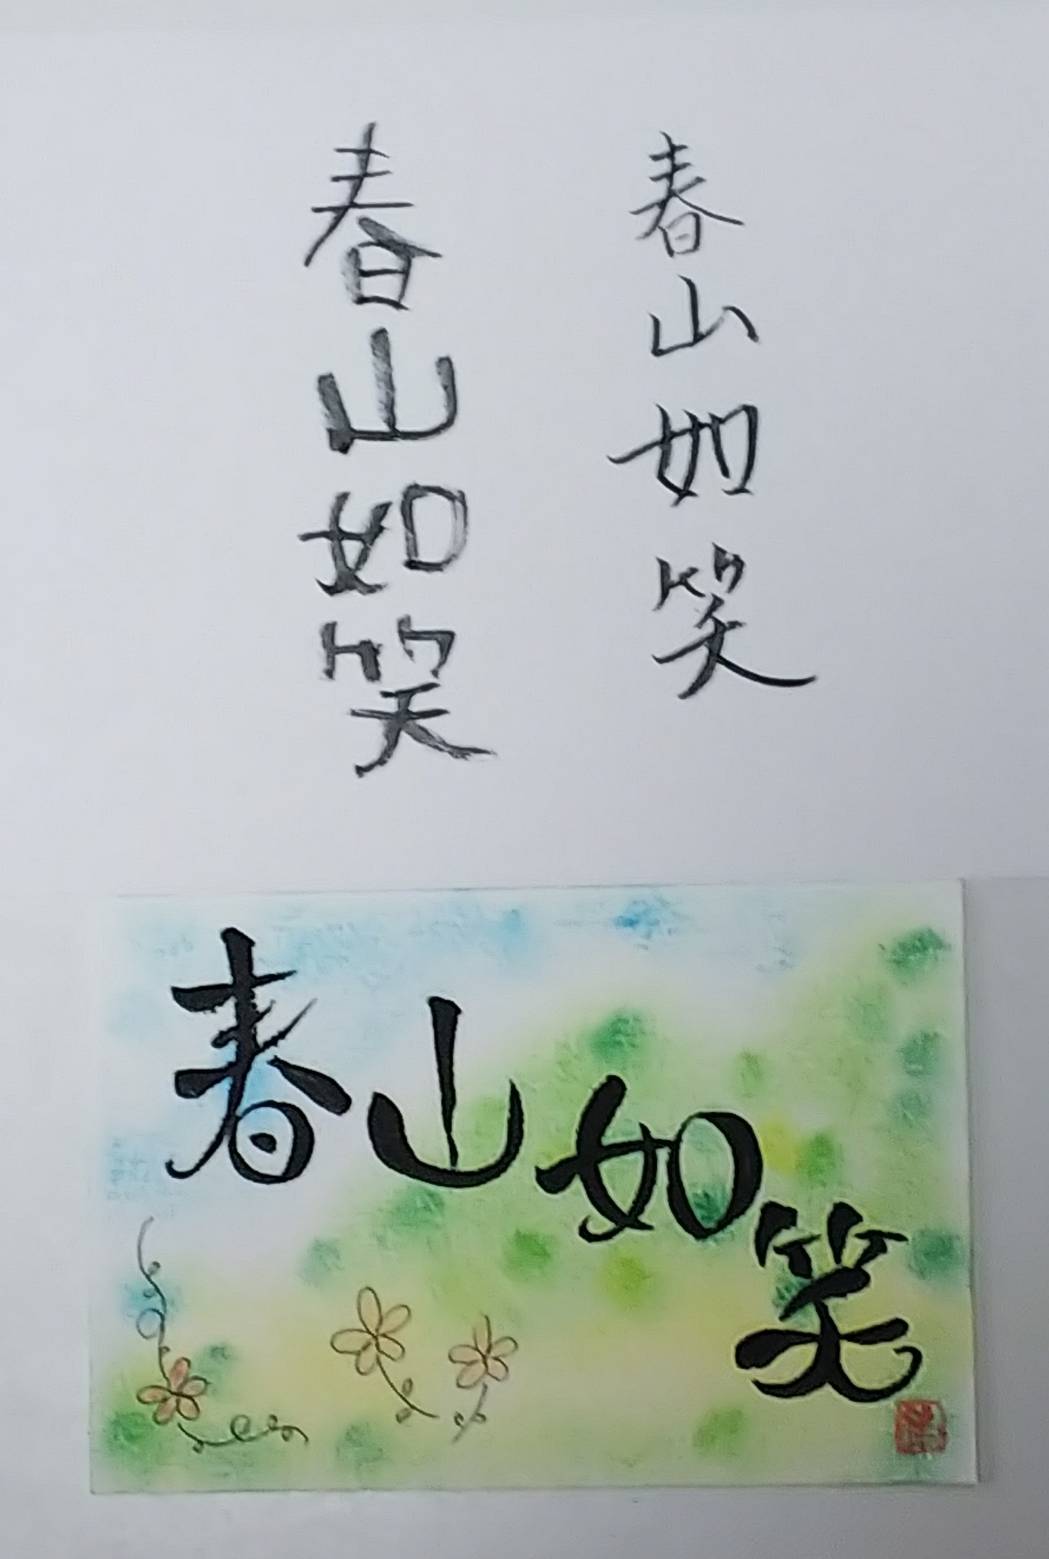 春山如笑
春山如笑
春山如笑